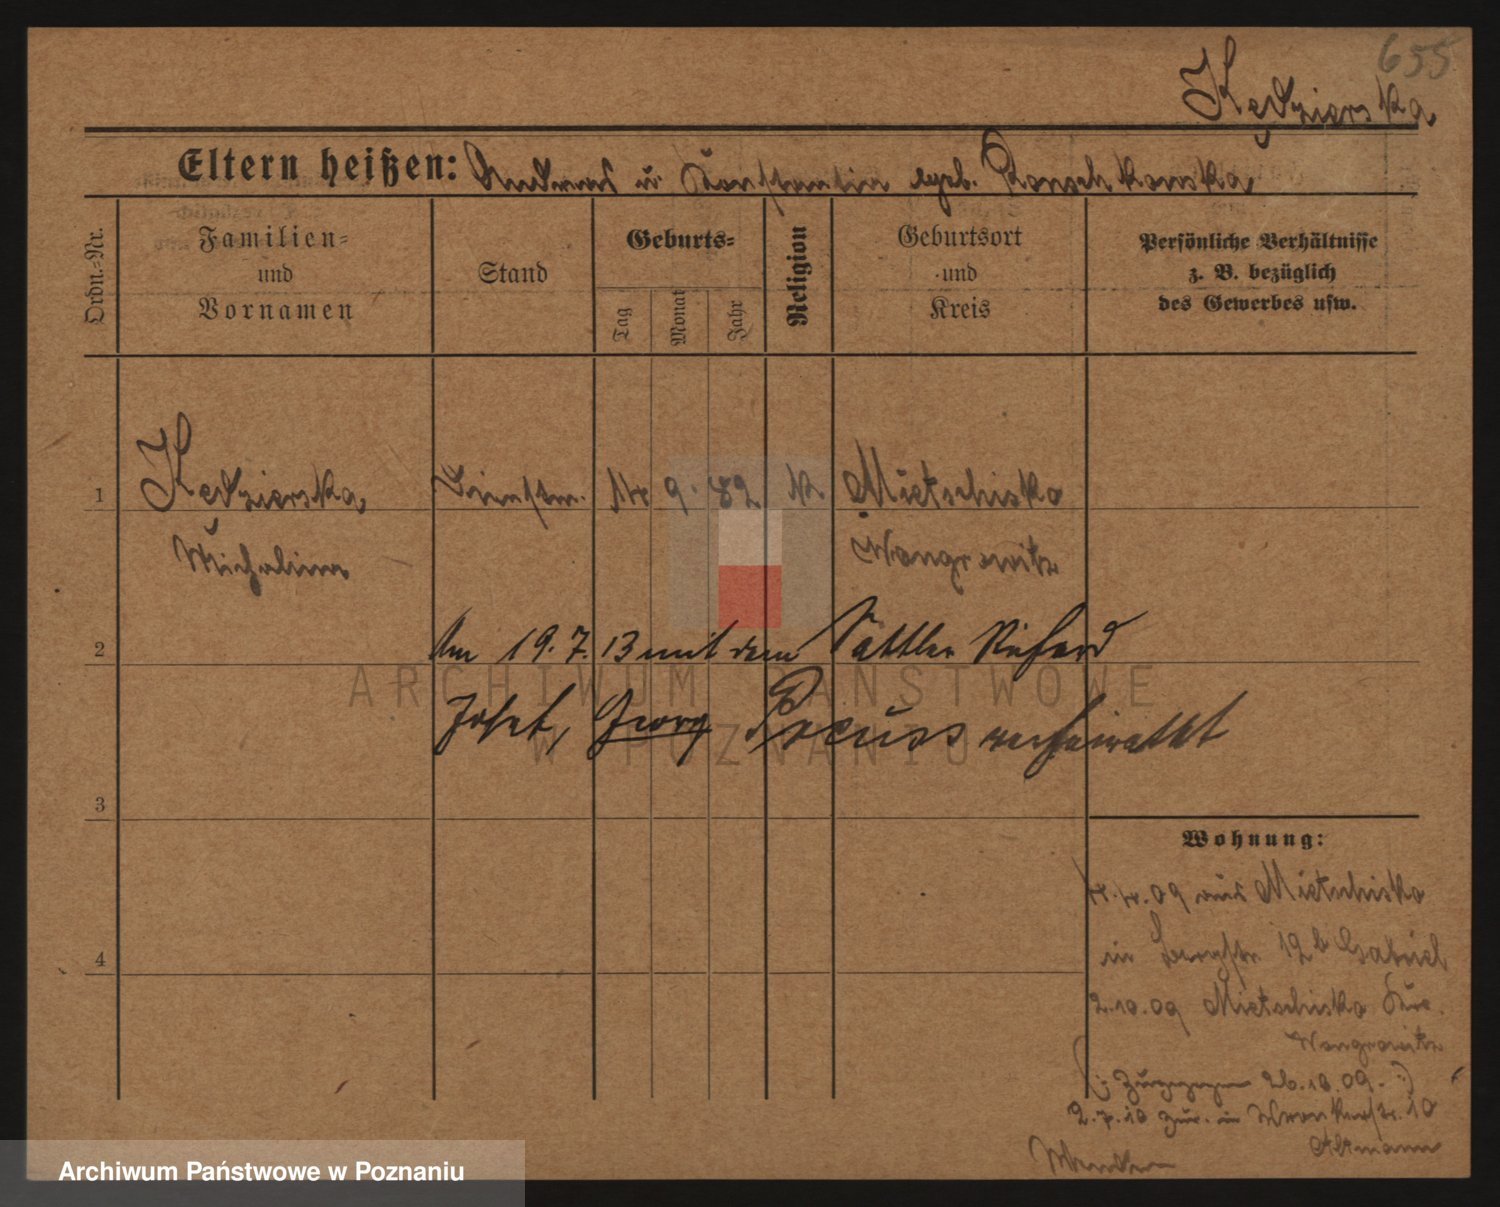 655
Kędzierska
Eltern heißen: Andreas u. Konstantin geb.
Ordn.-Nr.
Familien-
und
Vornamen
Stand
Geburts-
Tag
Monat
Jahr
Religion
Geburtsort
und
Kreis
Persönliche Verhältnisse
z. B. bezüglich
des Gewerbes usw.
1 Kedzierska, Dienstm. 14 9. 82 K. Mietschisko
Michalina Wongrowitz
2 Am 19.7.13 mit dem Sattler Richard
Josef, Georg Preuss verheiratet
3
4
Wohnung:
4.4.09 aus Mietschisko
in Bergstr. 12b Gabriel
2.10.09 Mietschisko Kr.
Wongrowitz
(: Zugezogen 26.10.09. :)
2.7.10 zur. in Wronkerstr. 10
Altmann
ARCHIWUM PAŃSTWOWE
W POZNANIU
Archiwum Państwowe w Poznaniu